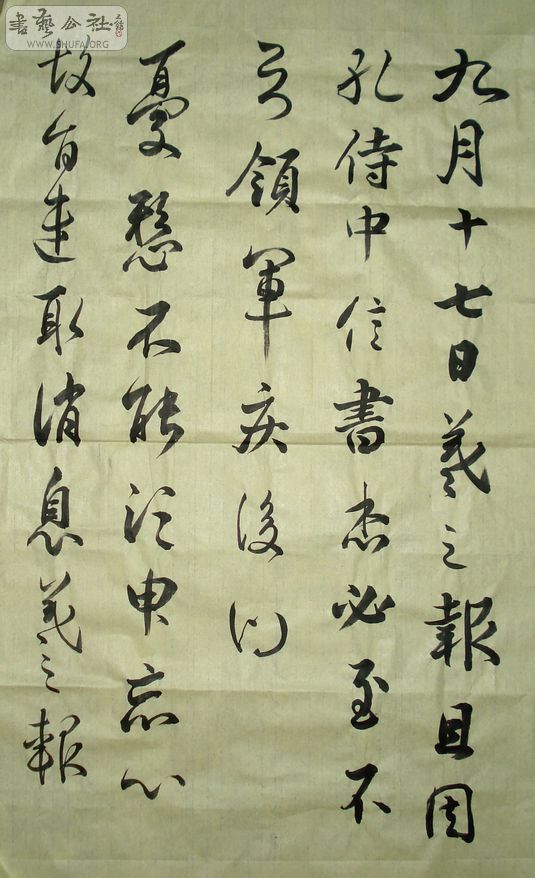 書藝公社
WWW.SHUFA.ORG
九月十七日羲之報且因
孔侍中信書想必至不
知領軍疾後問
憂懸不能須臾忘心
故旨遣取消息羲之報